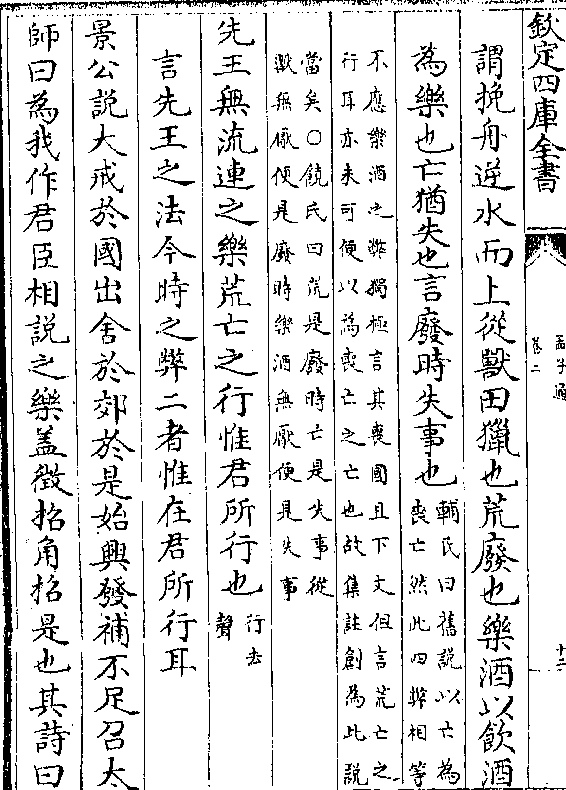 欽定四庫全書
孟子通
卷二
十二
謂挽舟逆水而上從獸田獵也荒廢也樂酒以飲酒
為樂也亡猶失也言廢時失事也
輔氏曰舊説以亡為
喪亡然此四弊相等
不應樂酒之弊獨極言其喪國且下文但言荒亡之
行耳亦未可便以為喪亡之亡也故集註創為此説
當矣○饒氏曰荒是廢時亡是失事從
獸無厭便是廢時樂酒無厭便是失事
先王無流連之樂荒亡之行惟君所行也
行去
聲
言先王之法今時之弊二者惟在君所行耳
景公説大戒於國出舍於郊於是始興發補不足召太
師曰為我作君臣相説之樂盖徵招角招是也其詩曰